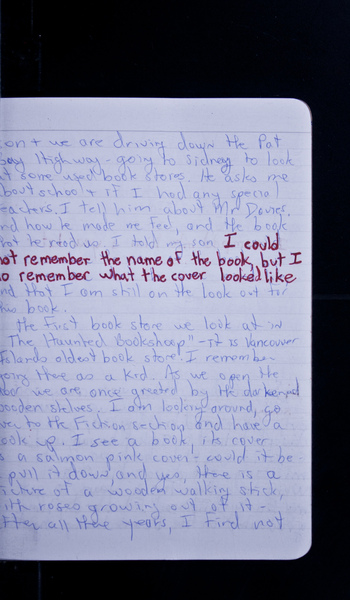 son + we are driving down the Pat
bay Highway - going to Sidney to look
at some used book stores. He asks me
about school + if I had any special
teachers. I tell him about Mr Davies.
and how he made me feel, and the book
that he read us. I told my son I could
not remember the name of the book, but I
do remember what the cover looked like
and that I am still on the look out for
this book.
The first book store we look at is
"The Haunted Bookshop" - it is Vancouver
Islands oldest book store. I remember
going there as a kid. As we open the
door we are once greeted by the darkened
wooden shelves. I am looking around, go
over to the Fiction section and have a
look up. I see a book, its cover
is a salmon pink cover - could it be -
I pull it down, and yes, there is a
picture of a wooden walking stick,
with roses growing out of it -
After all these years, I find not